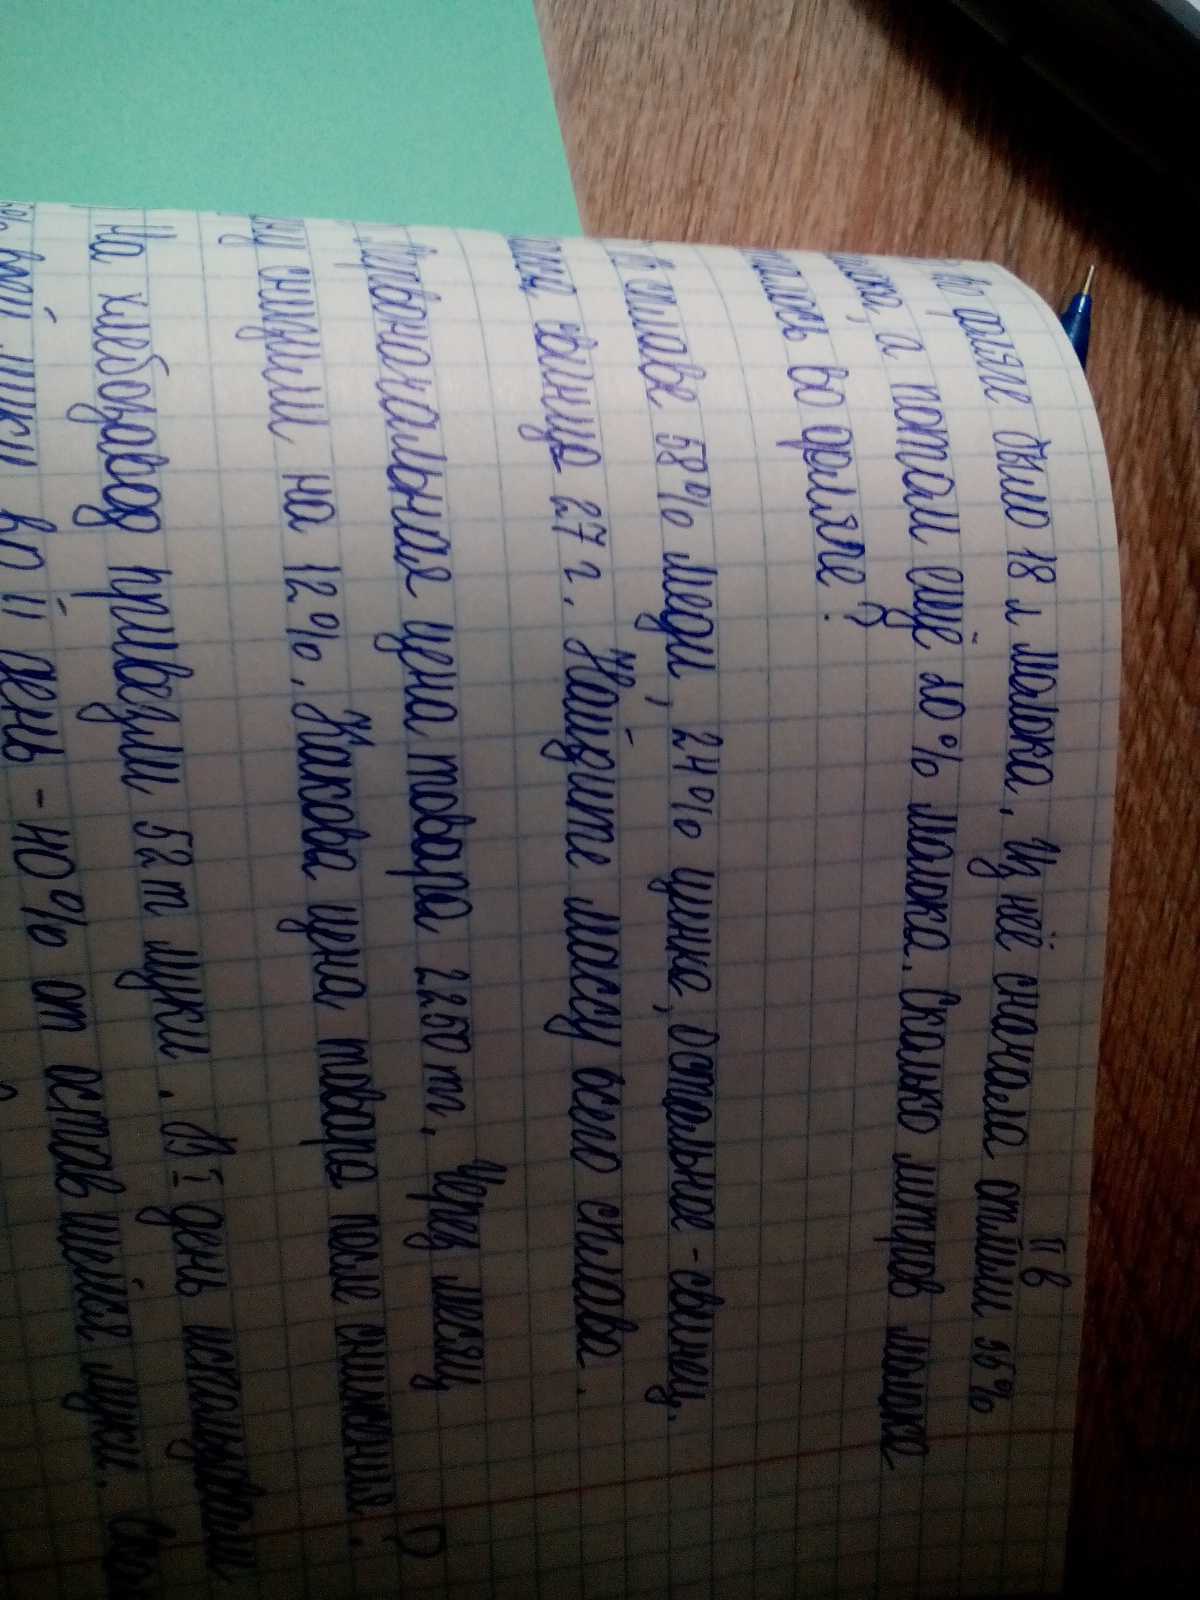 II в
Во фляге было 18 л молока. Из неё сначала отлили 55%
а потом ещё 20% молока. Сколько литров молока
во фляге?
В сплаве 58% меди, 24% цинка, остальное - свинец.
свинца 27 г. Найдите массу всего сплава.
Первоначальная цена товара 2250 т. Через месяц
снизили на 12%. Какова цена товара после снижения?
На хлебозавод привезли 52 т муки. В I день использовали
всей муки во II день - 40% от оставшейся муки.